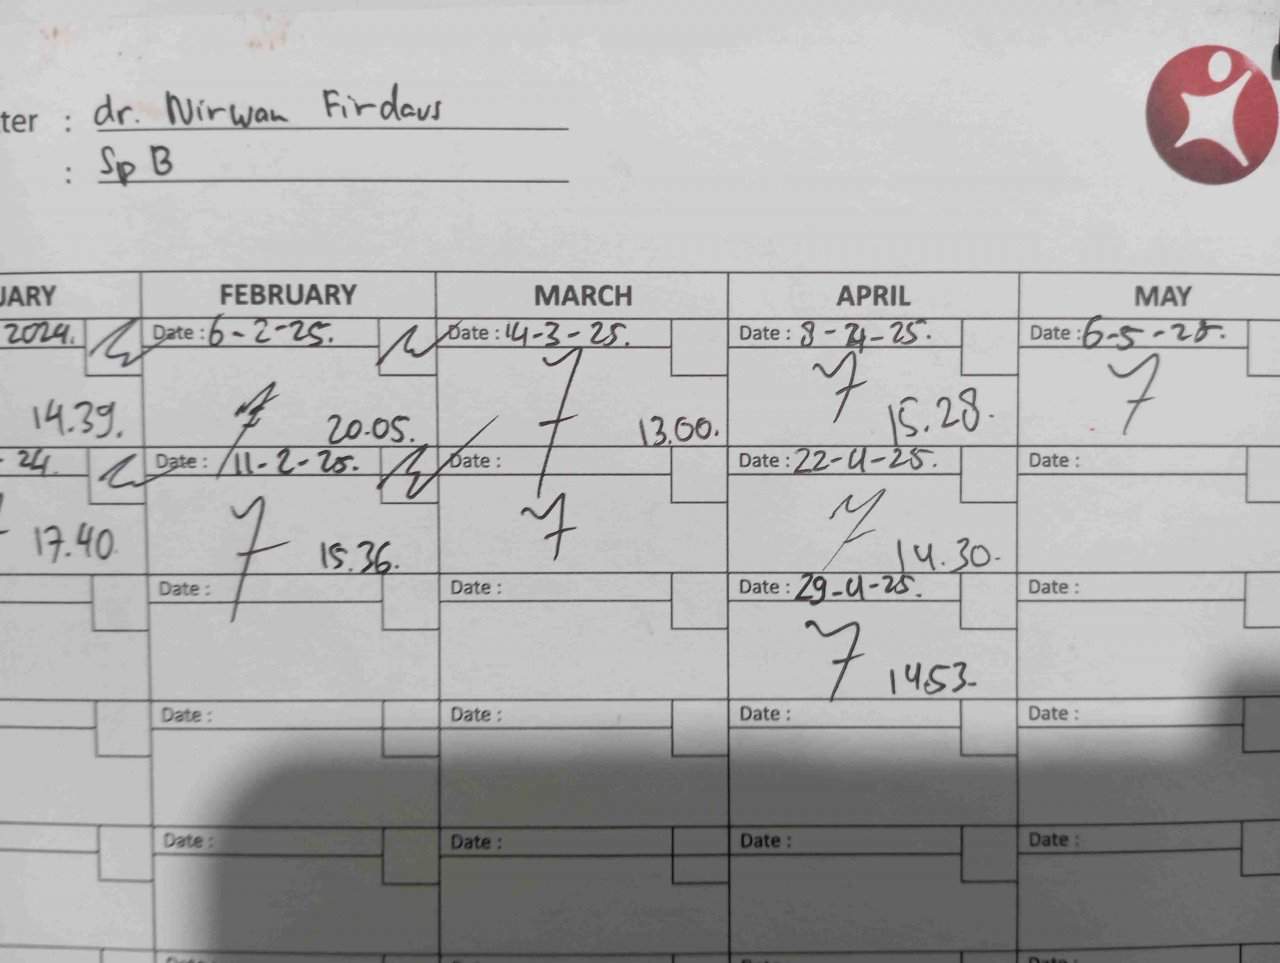 ter : dr. Nirwan Firdaus
: Sp B
UARY FEBRUARY MARCH APRIL MAY
2024. Date : 6-2-25. Date : 14-3-25. Date : 8-4-25. Date : 6-5-25.
14.39. 20.05. 13.00. 15.28.
- 24. Date : 11-2-25. Date : Date : 22-4-25. Date :
17.40. 15.36. 14.30.
Date : Date : Date : 29-4-25. Date :
14.53.
Date : Date : Date : Date :
Date : Date : Date : Date :
Date : Date : Date : Date :